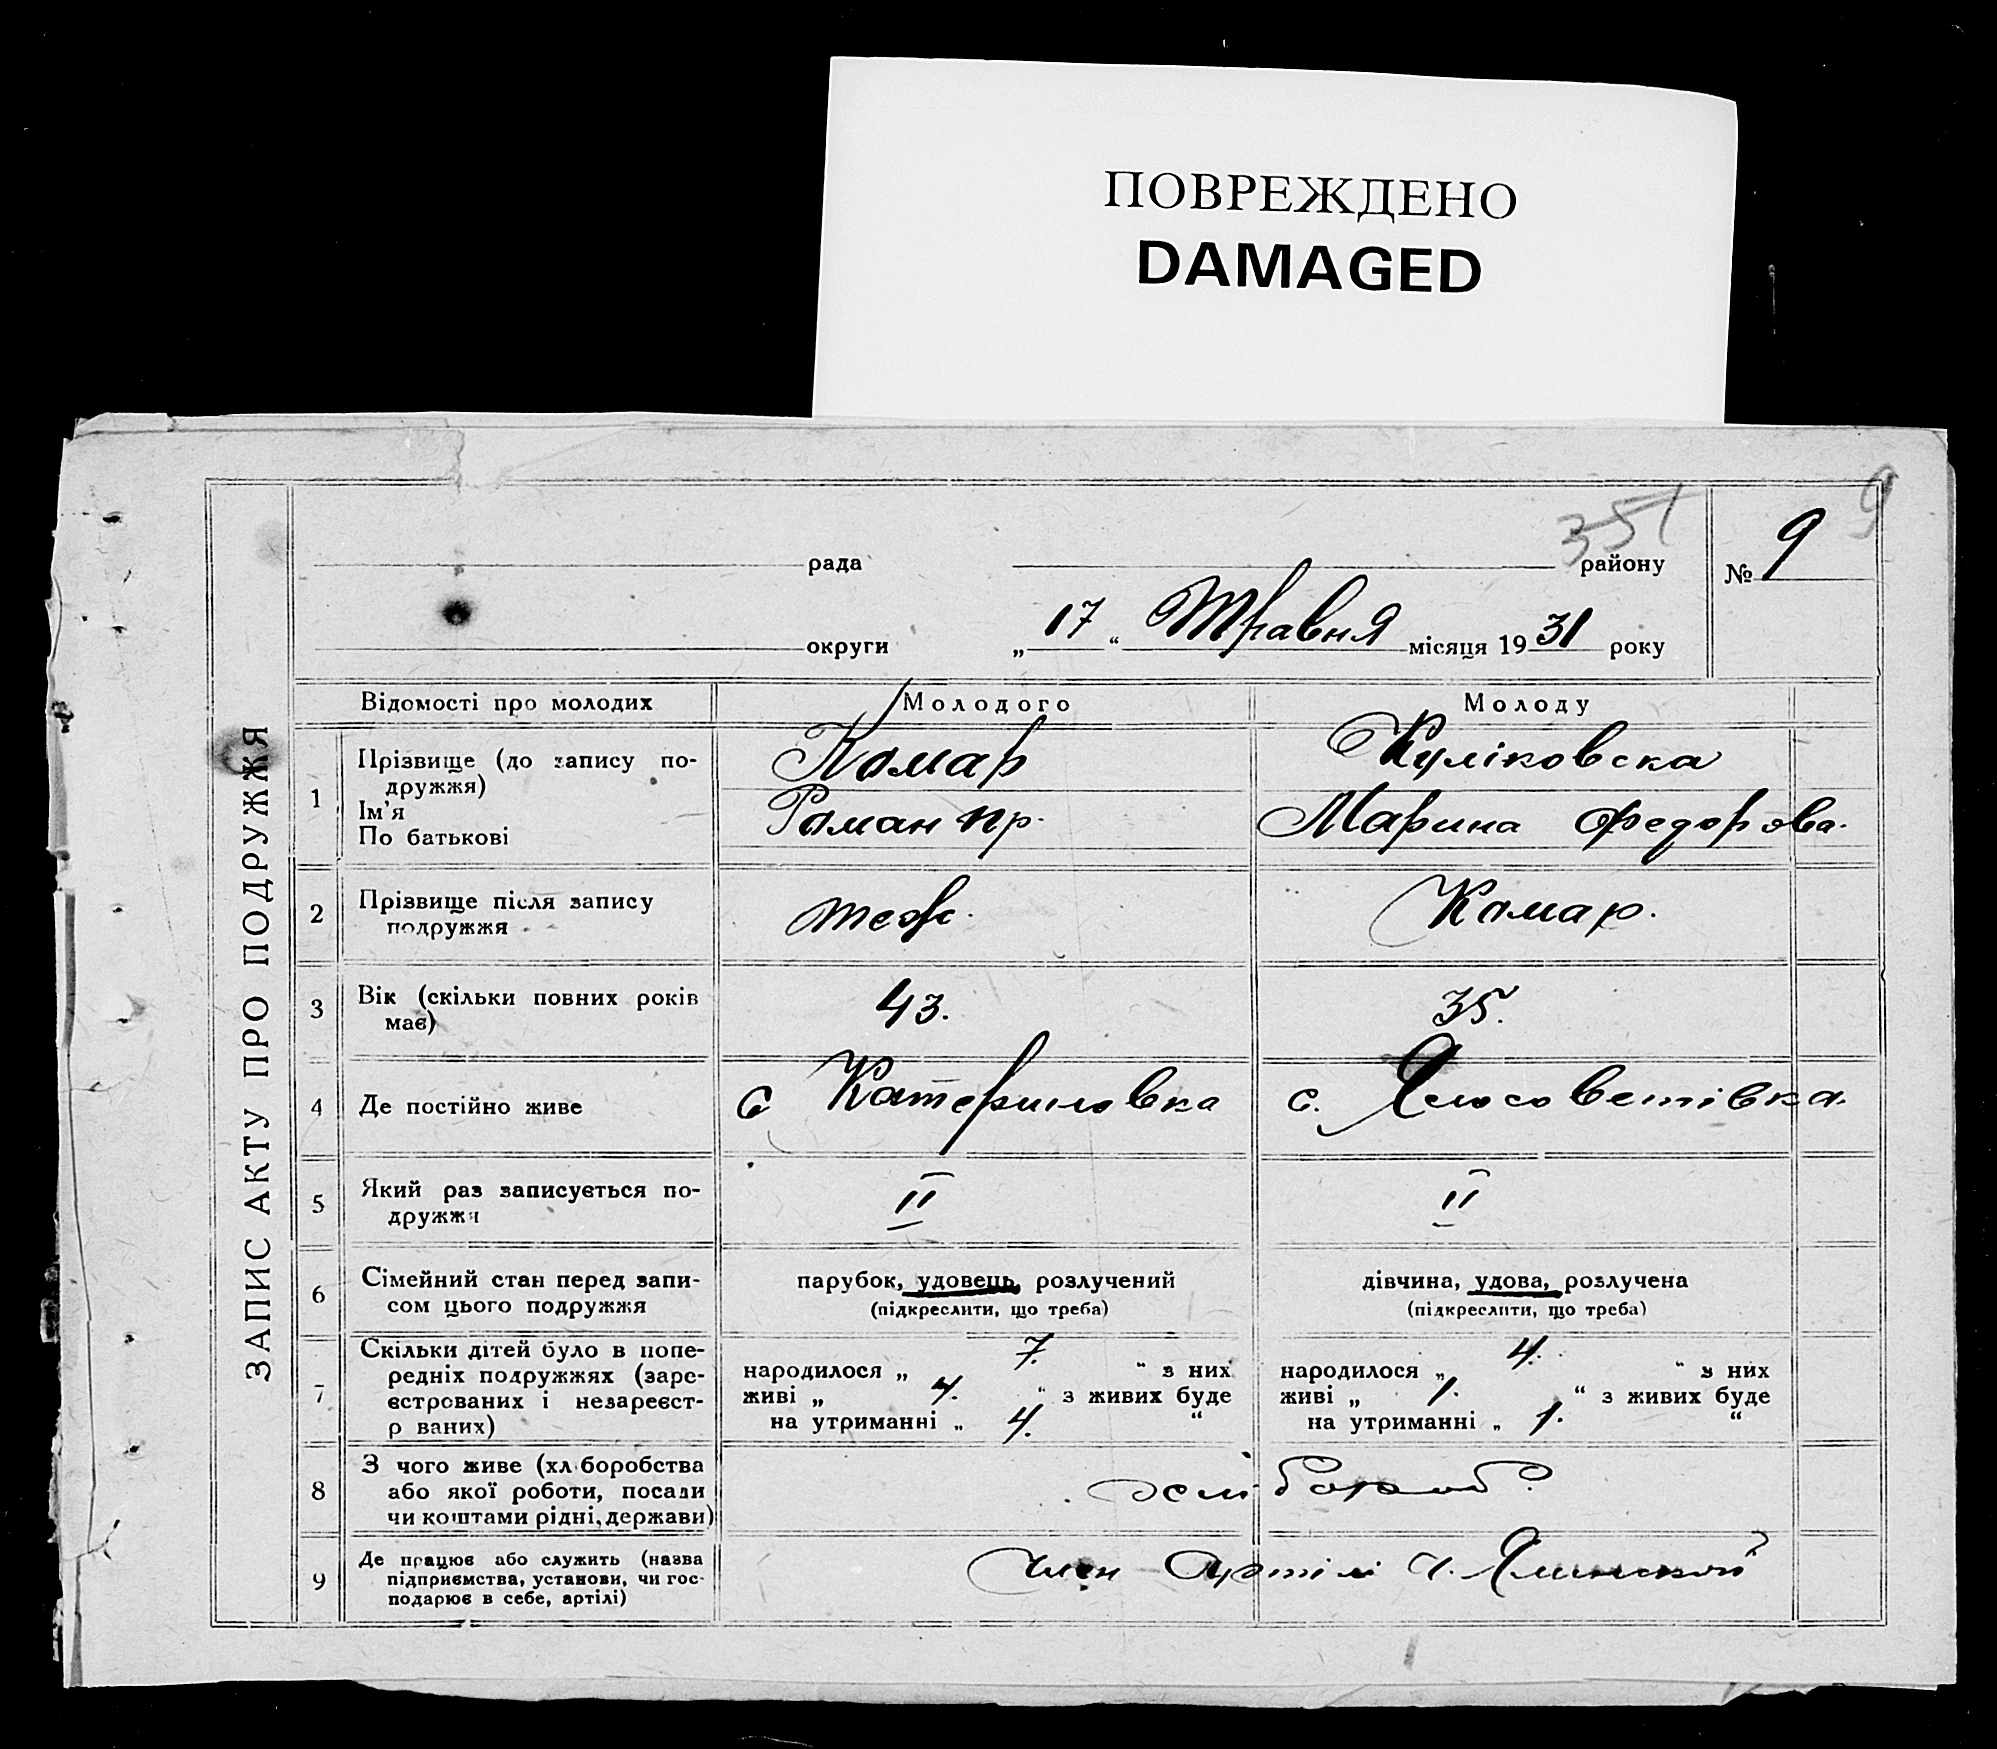 ПОВРЕЖДЕНО
DAMAGED
9
351
рада
району
№ 9
округи
„ 17 “ Травня місяця 19 31 року
ЗАПИС АКТУ ПРО ПОДРУЖЖЯ
Відомості про молодих
Молодого
Молоду
1
Прізвище (до запису по-
дружжя)
Ім'я
По батькові
Комар
Роман пр.
Куліковска
Марина Федорова.
2
Прізвище після запису
подружжя
теж.
Комар.
3
Вік (скільки повних років
має)
43.
35.
4
Де постійно живе
с Катериновка
с.
5
Який раз записується по-
дружжя
II
II
6
Сімейний стан перед запи-
сом цього подружжя
парубок, удовець, розлучений
(підкреслити, що треба)
дівчина, удова, розлучена
(підкреслити, що треба)
7
Скільки дітей було в попе-
редніх подружжях (заре-
єстрованих і незареєст-
р ваних)
народилося „ 7. “ з них
живі „ 4. “ з живих буде
на утриманні „ 4. “
народилося „ 4. “ з них
живі „ 1. “ з живих буде
на утриманні „ 1. “
8
З чого живе (хл боробства
або якої роботи, посади
чи коштами рідні, держави)
хліброб.
9
Де працює або служить (назва
підприємства, установи, чи гос-
подарює в себе, артілі)
член Артілі